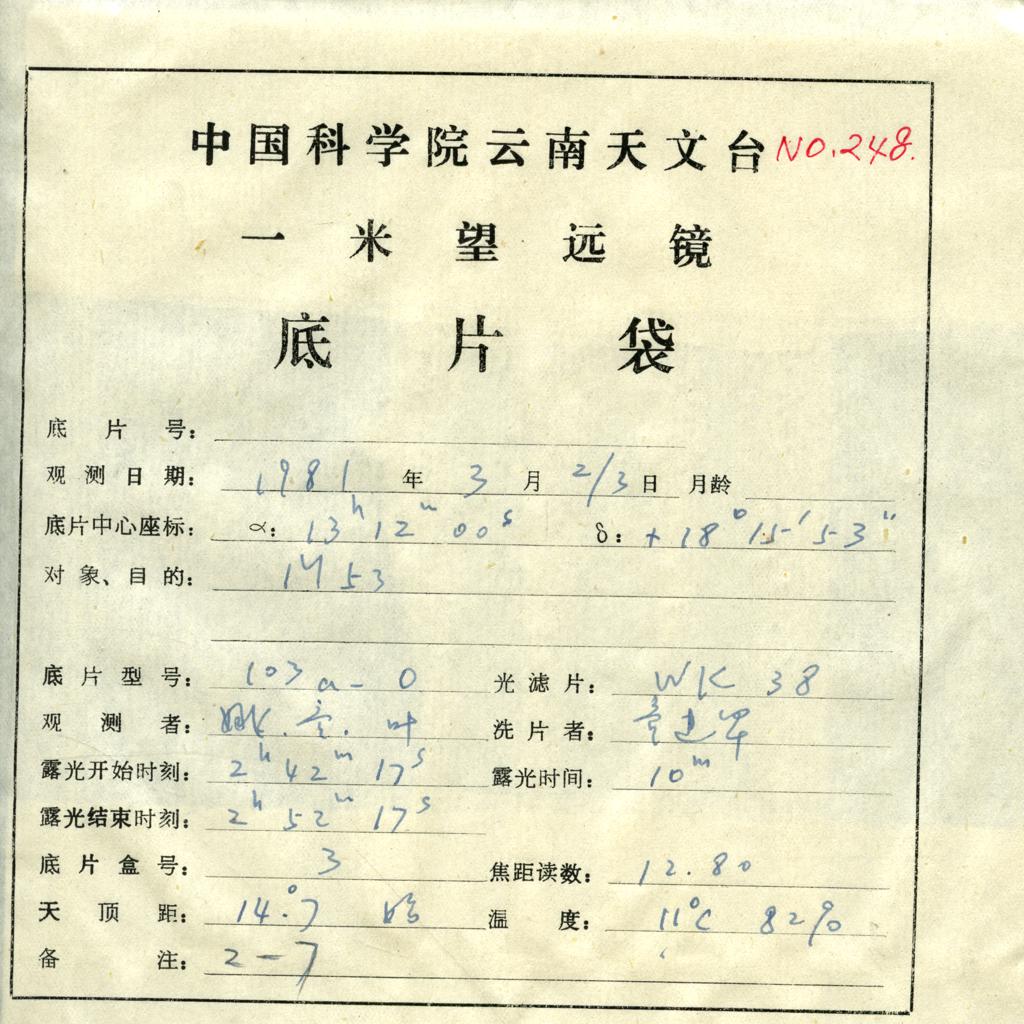 中国科学院云南天文台 NO.248.
一米望远镜
底片袋
底片号：
观测日期： 1981 年 3 月 2/3 日 月龄
底片中心座标： α： 13h 12m 00s δ： +18° 15′ 53″
对象、目的： M53
底片型号： 103a-O 光滤片： WK 38
观测者： 叶 洗片者：
露光开始时刻： 2h 42m 17s 露光时间： 10m
露光结束时刻： 2h 52m 17s
底片盒号： 3 焦距读数： 12.80
天顶距： 14°.7 温度： 11°C 82%
备注： 2-7